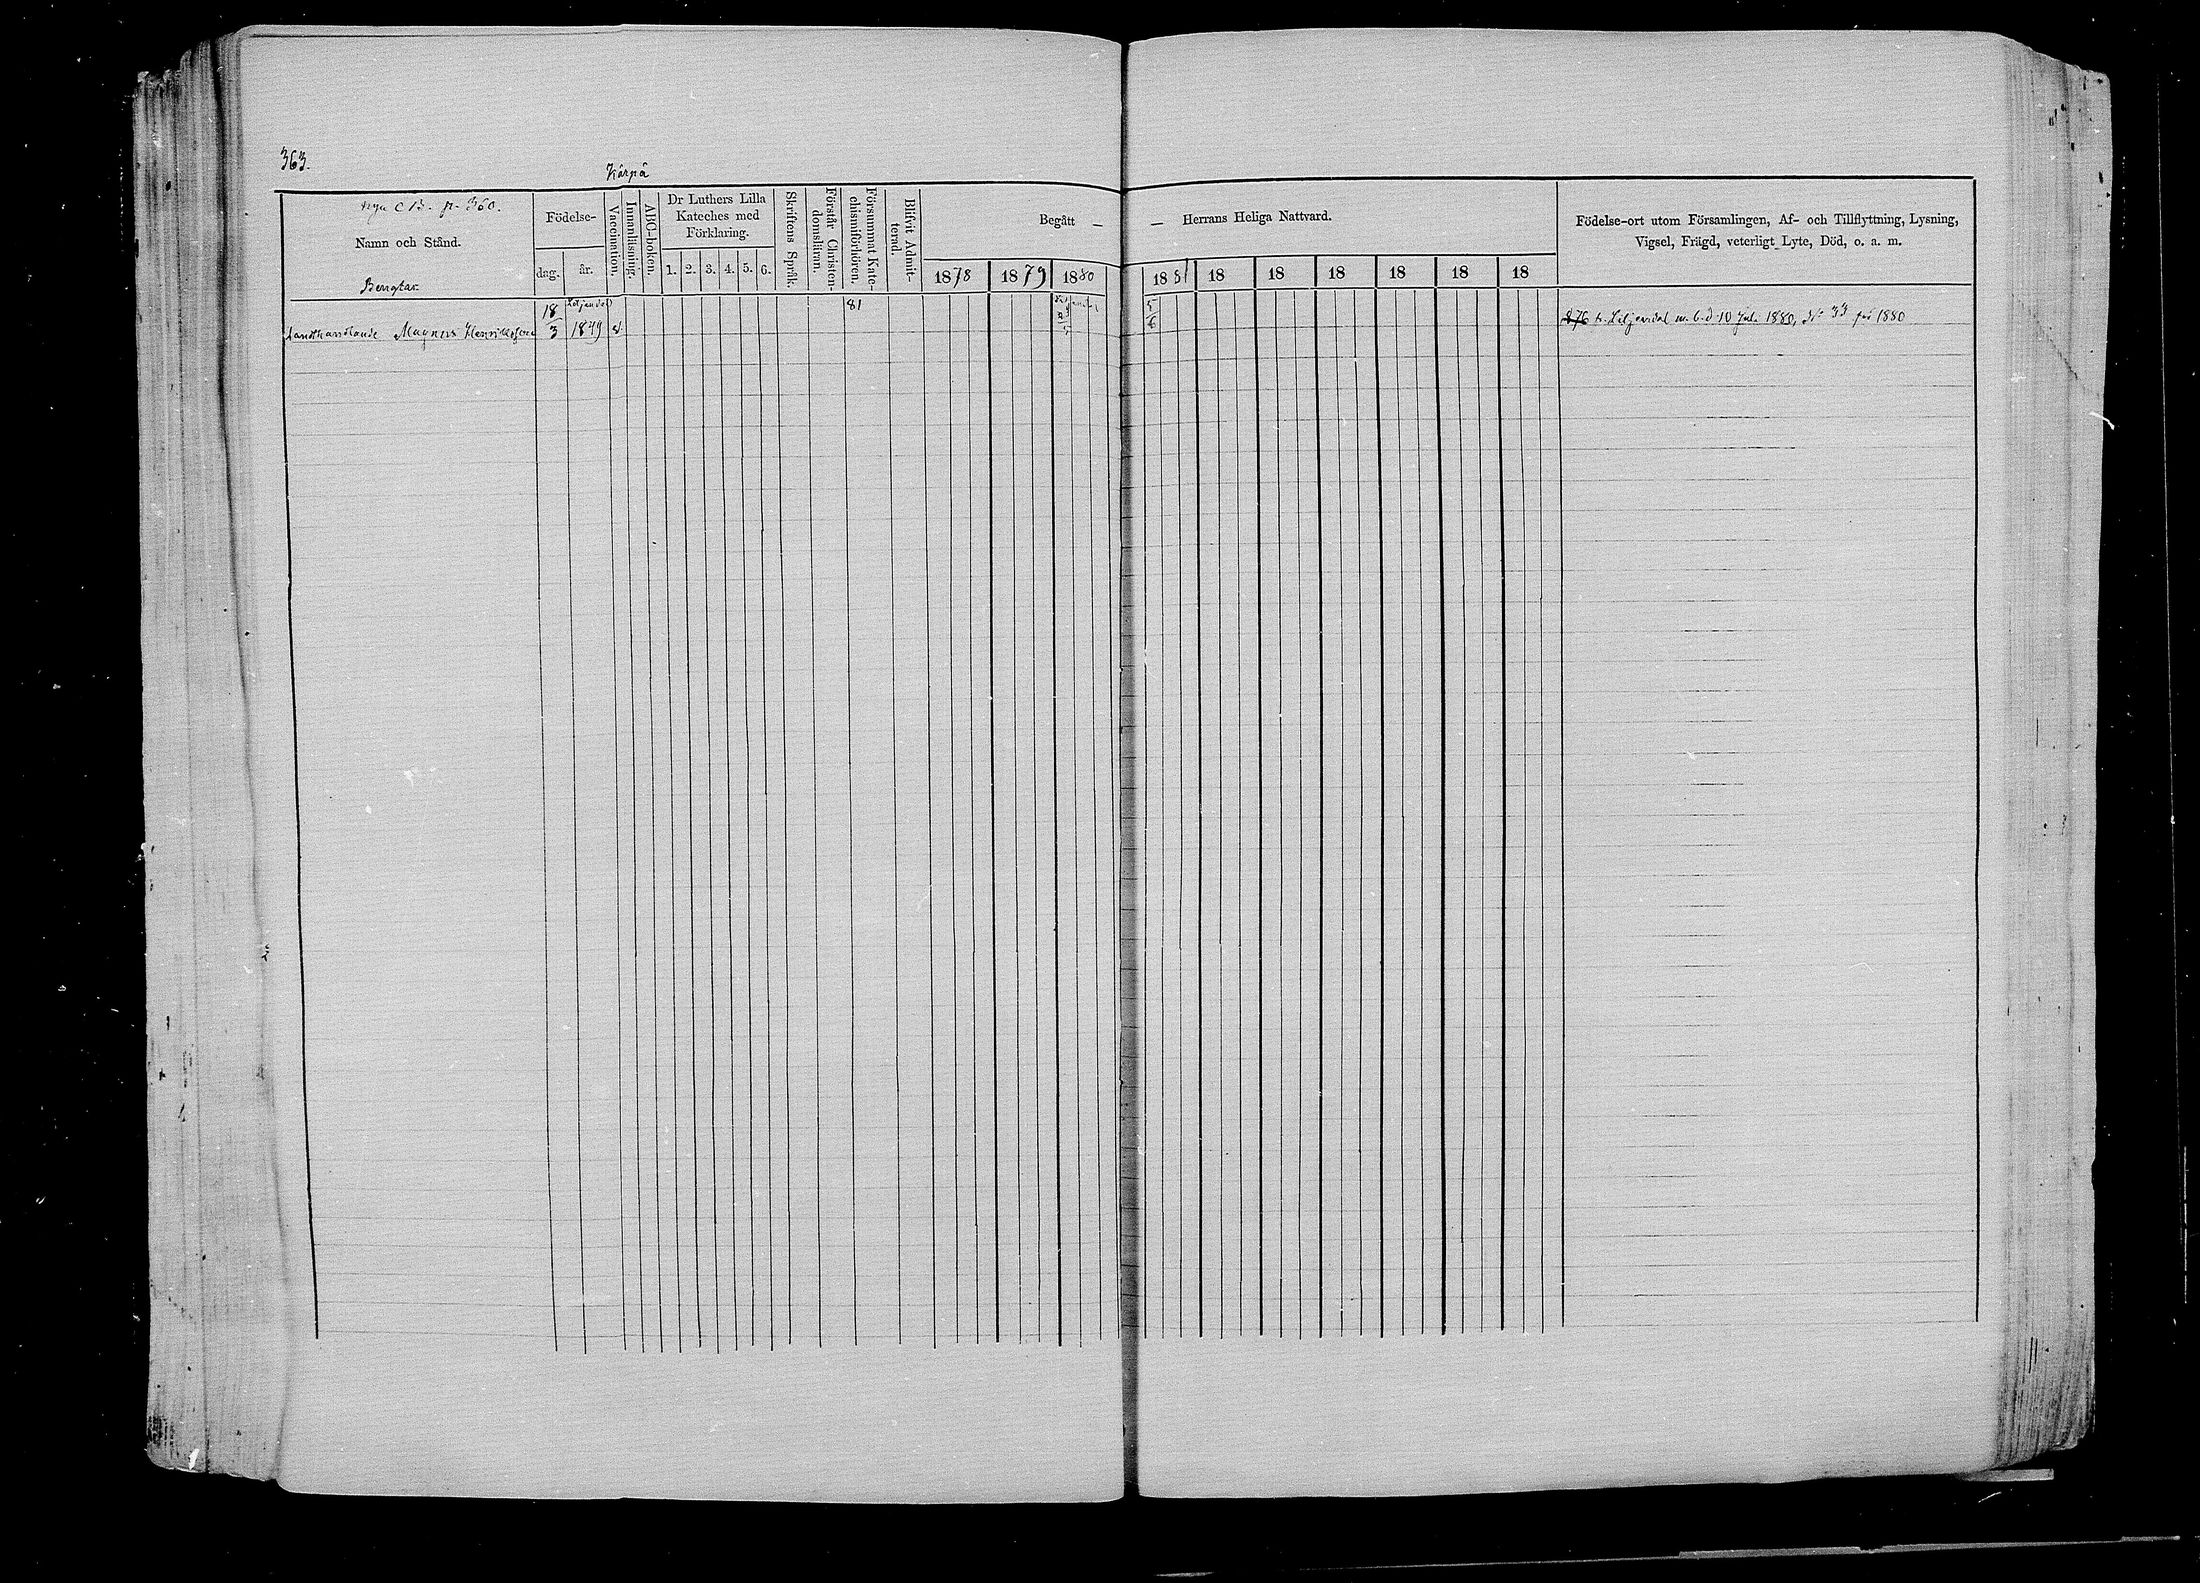 363.
Kärpä
nya C B. p. 360.
Namn och Stånd.
Bengtar
Födelse-
dag. år.
Vaccination.
Innanläsning.
ABC-boken.
Dr Luthers Lilla
Kateches med
Förklaring.
1. 2. 3. 4. 5. 6.
Skriftens Språk.
Förstår Christen-
domsläran.
Försummat Kate-
chismiförhören.
Blifvit Admit-
terad.
Begått — — Herrans Heliga Nattvard.
1878 1879 1880 1881 18 18 18 18 18 18
Födelse-ort utom Församlingen, Af- och Tillflyttning, Lysning,
Vigsel, Frägd, veterligt Lyte, Död, o. a. m.
Liljendal
Landthandlande Magnus Henriksson 18/3 1849 v. 81 5/6
fr. Liljendal m. b. d. 10 Juli 1880, No 33 för 1880